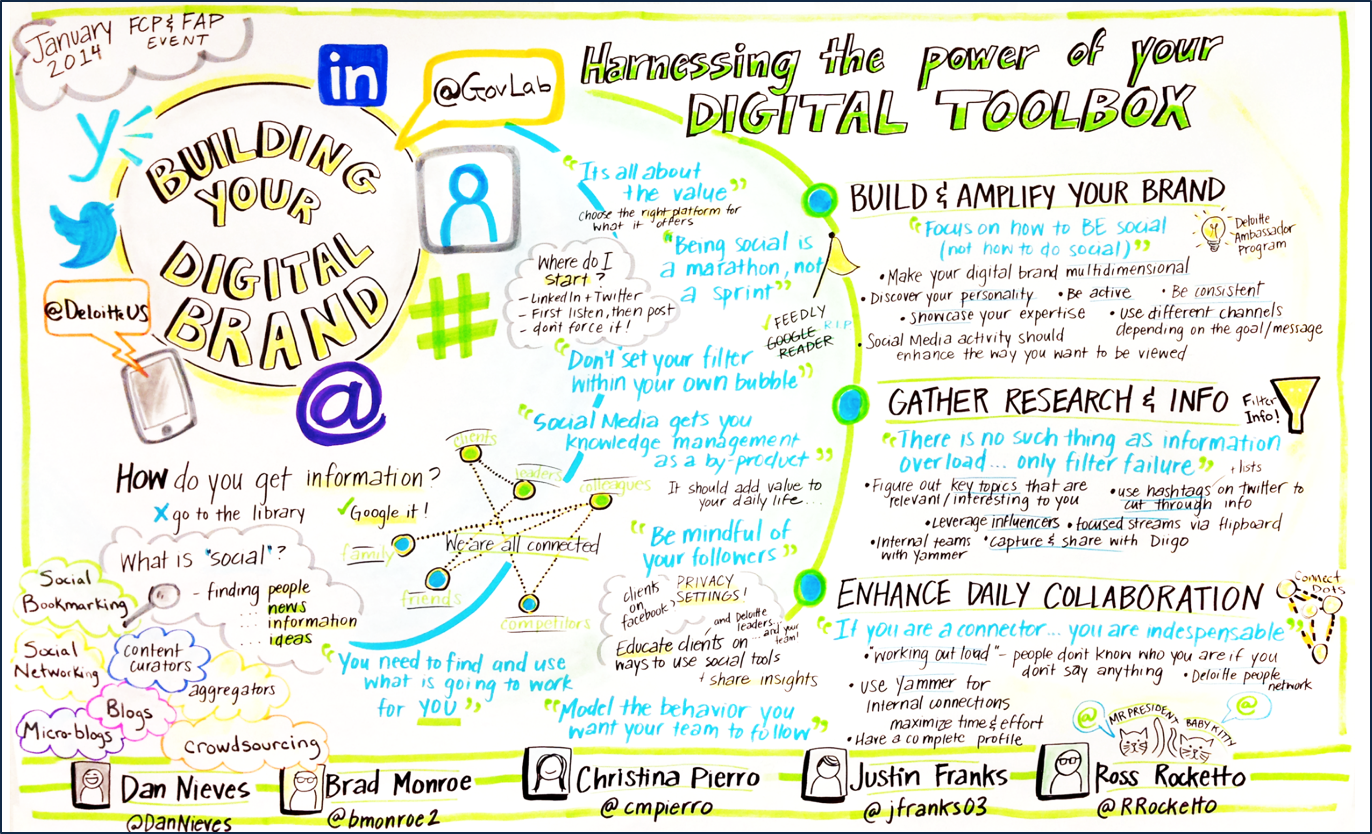 January
2014
FCP & FAP
EVENT
in
@GovLab
y
BUILDING
YOUR
DIGITAL
BRAND
@DeloitteUS
#
@
Harnessing the power of your
DIGITAL TOOLBOX
"Its all about
the value"
choose the right platform for
what it offers
"Being social is
a marathon, not
a sprint"
Where do I
start?
- LinkedIn + Twitter
- First listen, then post
- dont force it!
✓ FEEDLY
GOOGLE R.I.P.
READER
"Don't set your filter
within your own bubble"
"Social Media gets you
knowledge management
as a by-product"
It should add value to
your daily life...
"Be mindful of
your followers"
PRIVACY
SETTINGS!
clients
on
facebook,
and Deloitte
leaders...
...and your
team!
Educate clients on
ways to use social tools
+ share insights
"Model the behavior you
want your team to follow"
HOW do you get information?
x go to the library
✓ Google it!
What is "social"?
- finding people
... news
... information
... ideas
Social
Bookmarking
Social
Networking
content
curators
aggregators
Blogs
Micro-blogs
crowdsourcing
clients
leaders
colleagues
family
We are all connected
friends
competitors
"You need to find and use
what is going to work
for YOU"
BUILD & AMPLIFY YOUR BRAND
"Focus on how to BE social
(not how to do social)"
Deloitte
Ambassador
Program
• Make your digital brand multidimensional
• Discover your personality • Be active • Be consistent
• showcase your expertise
• use different channels
depending on the goal/message
• Social Media activity should
enhance the way you want to be viewed
GATHER RESEARCH & INFO
Filter
Info!
"There is no such thing as information
overload... only filter failure"
• Figure out key topics that are
relevant/interesting to you
+ lists
• use hashtags on twitter to
cut through info
• Leverage influencers • focused streams via flipboard
• Internal teams
with yammer
• capture & share with Diigo
ENHANCE DAILY COLLABORATION
Connect
Dots
"If you are a connector... you are indespensable"
• "working out load" - people dont know who you are if you
dont say anything
• Deloitte people
network
• use Yammer for
Internal connections
maximize time & effort
• Have a complete profile
@
MR PRESIDENT
BABY KITTY
@
Dan Nieves
@DanNieves
Brad Monroe
@bmonroe2
Christina Pierro
@cmpierro
Justin Franks
@jfranks03
Ross Rocketto
@RRocketto